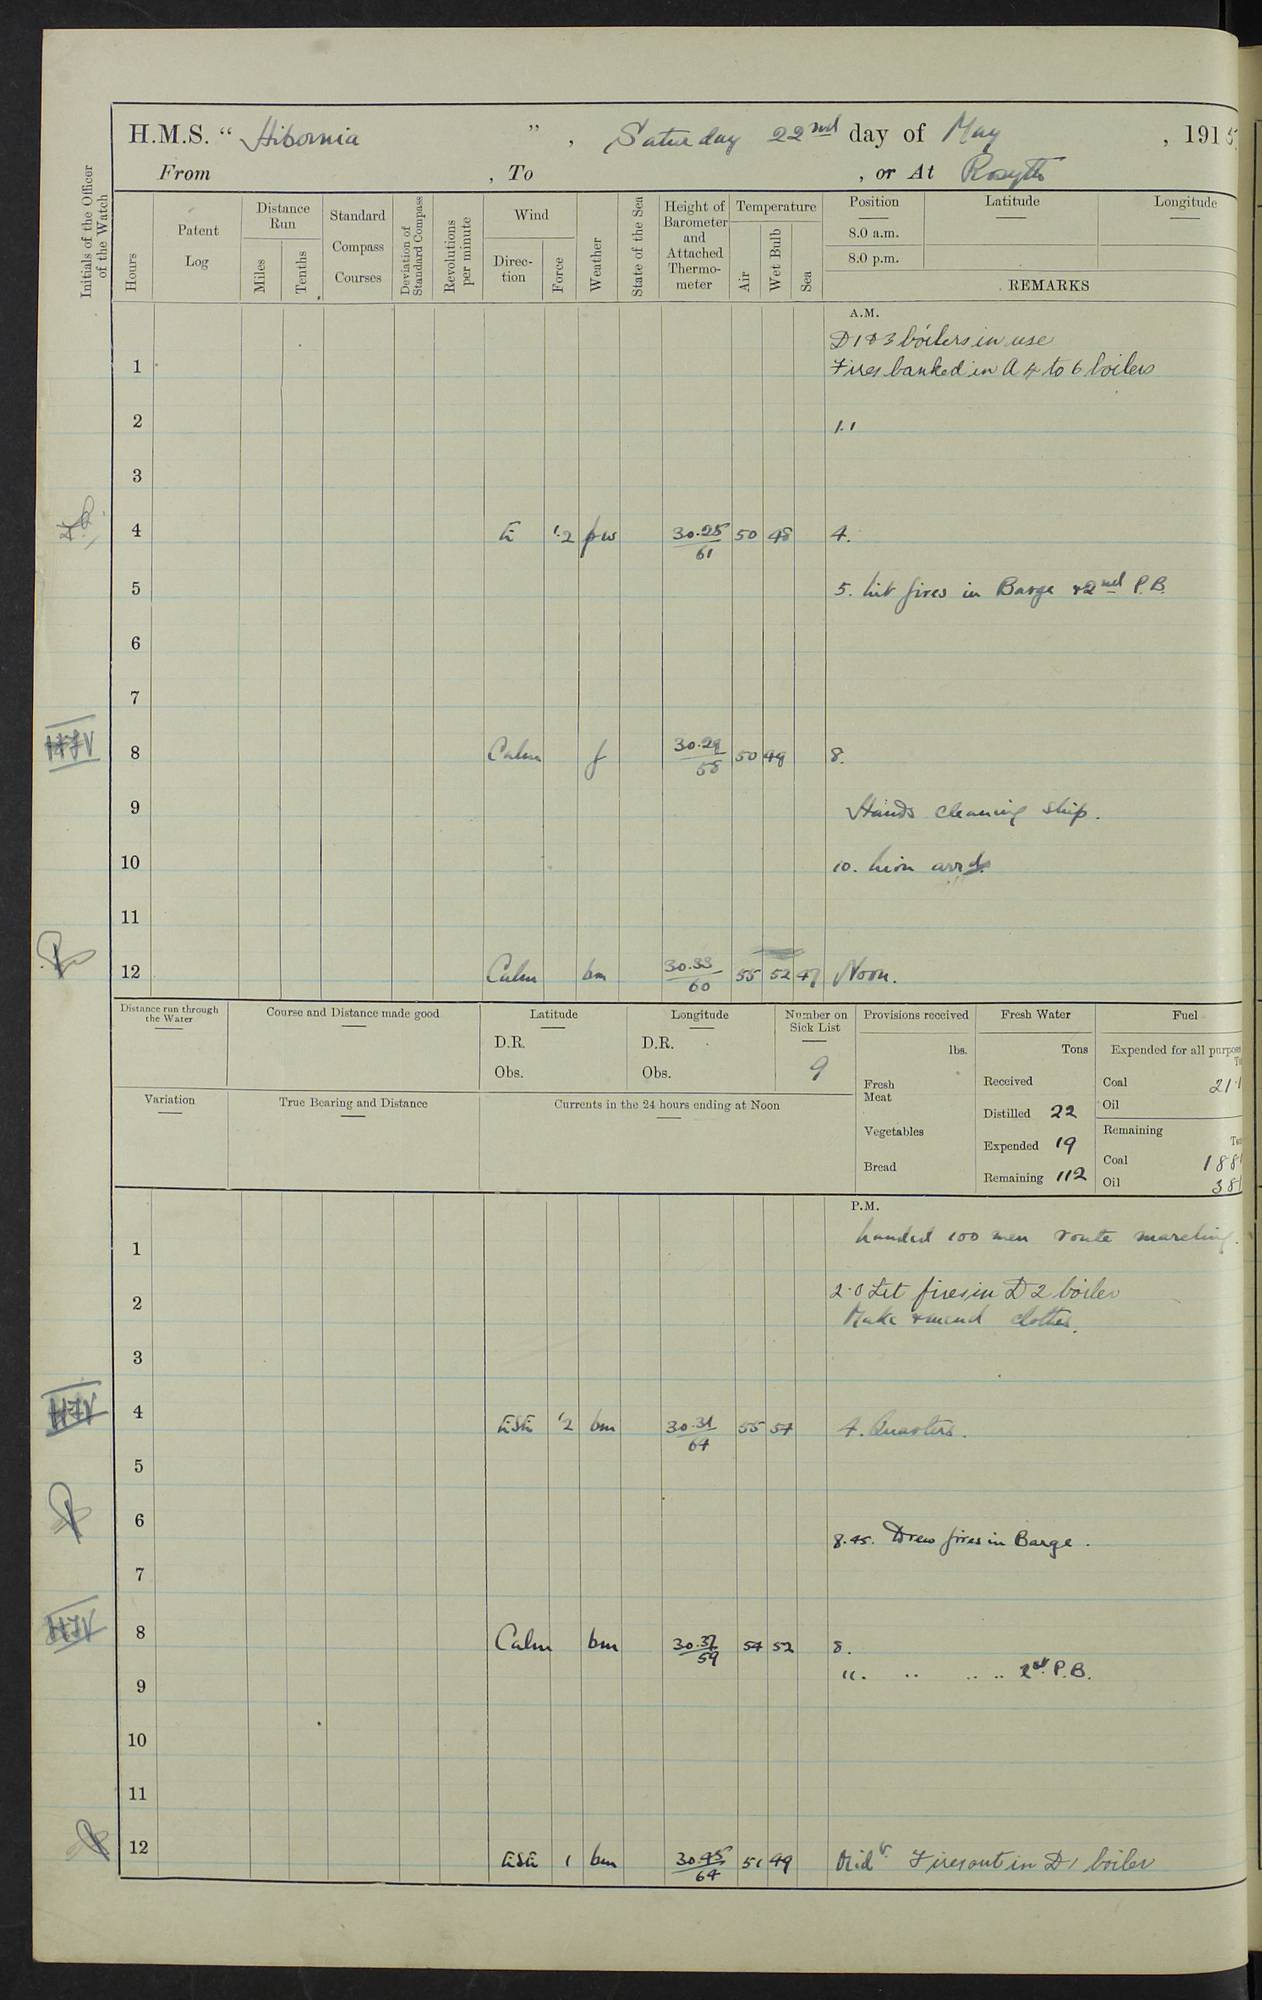 H.M.S. " Hibernia " , Saturday 22nd day of May , 1915
From , To , or At Rosyth
Initials of the Officer of the Watch
Hours
Patent Log
Distance Run
Miles
Tenths
Standard Compass Courses
Deviation of Standard Compass
Revolutions per minute
Wind
Direc-tion
Force
Weather
State of the Sea
Height of Barometer and Attached Thermo-meter
Temperature
Air
Wet Bulb
Sea
Position Latitude Longitude
8.0 a.m.
8.0 p.m.
REMARKS
A.M.
D 1 & 3 boilers in use
1 Fires banked in A 4 to 6 boilers
2 1.1
3
4 E 1.2 30.25/61 50 48 4.
5 5. Lit fires in Barge & 2nd P.B.
6
7
8 Calm f 30.29/58 50 49 8.
9 Hands cleaning ship.
10 10. Lion arrd.
11
12 Calm bm 30.33/60 55 52 47 Noon.
Distance run through the Water
Course and Distance made good
Latitude
D.R.
Obs.
Longitude
D.R.
Obs.
Number on Sick List
9
Variation
True Bearing and Distance
Currents in the 24 hours ending at Noon
Provisions received
lbs.
Fresh Meat
Vegetables
Bread
Fresh Water
Tons
Received
Distilled 22
Expended 19
Remaining 112
Fuel
Expended for all purpos
Coal 21.
Oil
Remaining
Coal 188
Oil 38
P.M.
1 Landed 100 men route marching.
2 2.0 Lit fires in D 2 boiler
Make & mend clothes.
3
4 ESE 1.2 bm 30.31/64 55 54 4. Quarters.
5
6 8.45. Drew fires in Barge.
7
8 Calm bm 30.37/59 54 52 8.
9 11. " " " 2nd P.B.
10
11
12 ESE 1 bm 30.45/64 51 49 Midt. Fires out in D 1 boiler